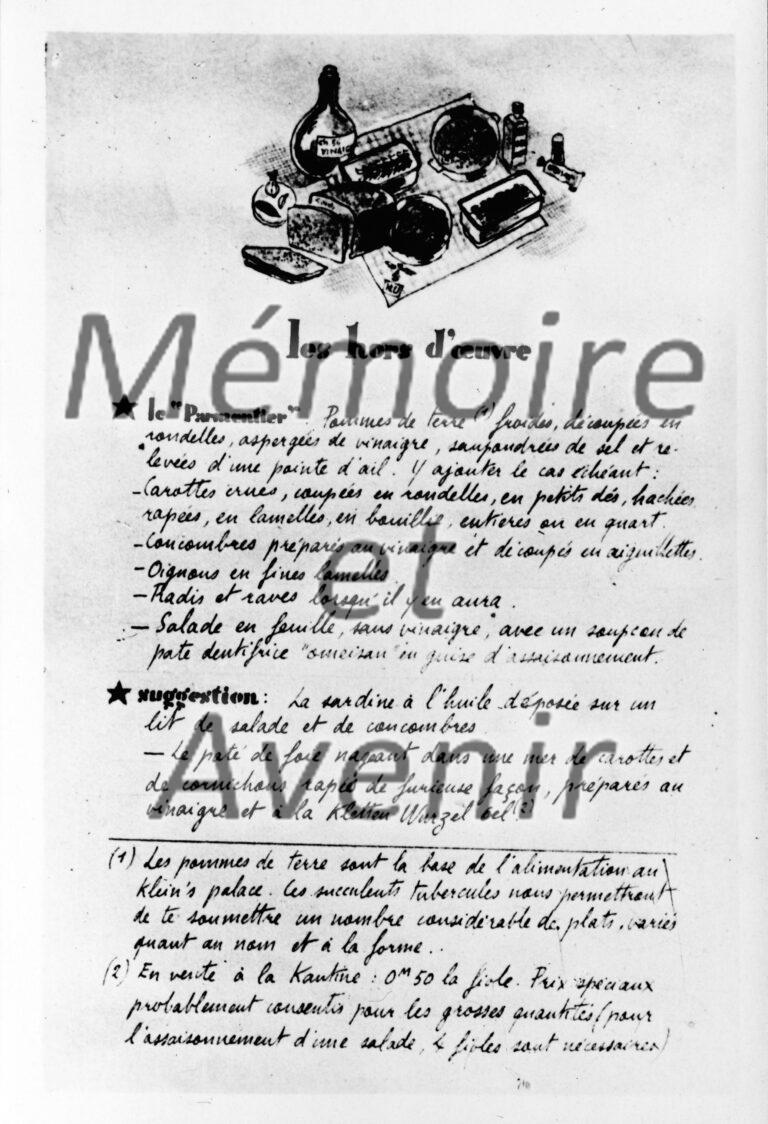 VINAIG
les hors d'œuvre
★ le "Parmentier". Pommes de terre (1) froides, découpées en
rondelles, aspergées de vinaigre, saupondrées de sel et re-
levées d'une pointe d'ail. Y ajouter le cas échéant :
- Carottes crues, coupées en rondelles, en petits dés, hachées
rapées, en lamelles, en bouillie, entieres ou en quart.
- Concombres préparés au vinaigre et découpés en aiguillettes.
- Oignons en fines lamelles.
- Radis et raves lorsqu'il y en aura.
- Salade en feuille, sans vinaigre, avec un soupcon de
pate dentifrice "omeisan" en guise d'assaisonnement.
★ suggestion : La sardine à l'huile déposée sur un
lit de salade et de concombres
- Le paté de foie nageant dans une mer de carottes et
de cornichons rapés de furieuse façon, préparés au
vinaigre et à la Kletten Wurzel oel (2)
(1) Les pommes de terre sont la base de l'alimentation au
Klein's palace. Ces succulents tubercules nous permettront
de te soumettre un nombre considérable de plats, variés
quant au nom et à la forme..
(2) En vente à la Kantine : 0M50 la fiole. Prix spéciaux
probablement consentis pour les grosses quantités (pour
l'assaisonnement d'une salade, 4 fioles sont nécessaires)
Mémoire
et
Avenir